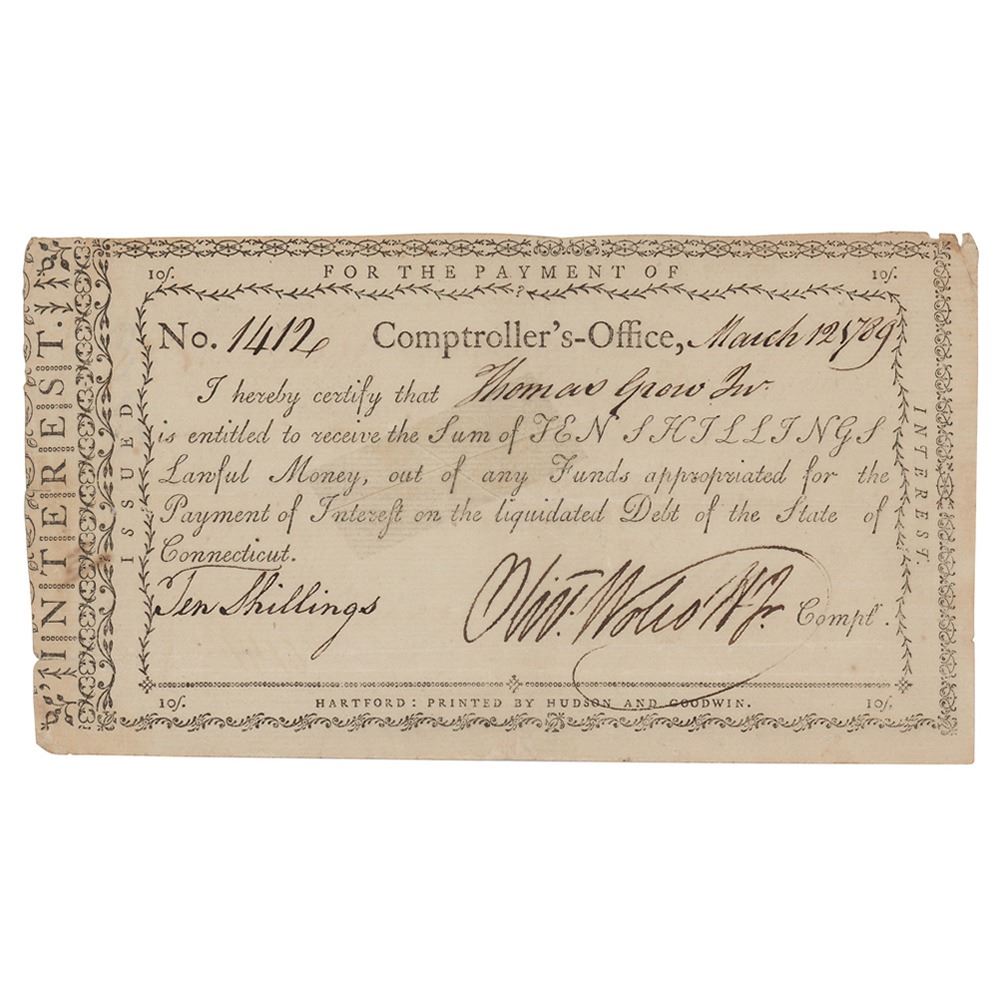 INTEREST.
ISSUED
FOR THE PAYMENT OF
INTEREST.
10ſ.
10ſ.
No. 1412 Comptroller's-Office, March 12 1789
I hereby certify that Thomas Grow Jnr
is entitled to receive the Sum of TEN SHILLINGS
Lawful Money, out of any Funds appropriated for the
Payment of Intereſt on the liquidated Debt of the State of
Connecticut.
Ten Shillings
Olivr. Wolcott Jr. Comptr.
10ſ.
HARTFORD: PRINTED BY HUDSON AND GOODWIN.
10ſ.